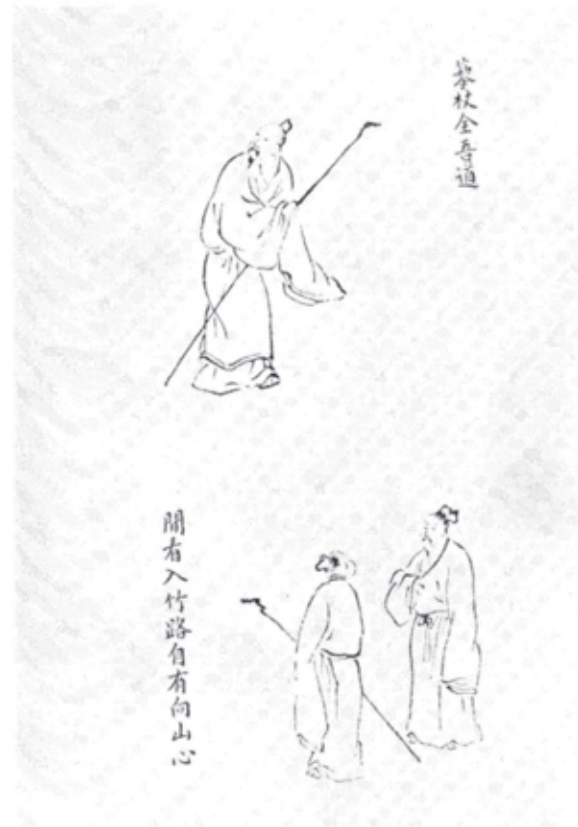 藜杖全吾道
閒看入竹路自有向山心